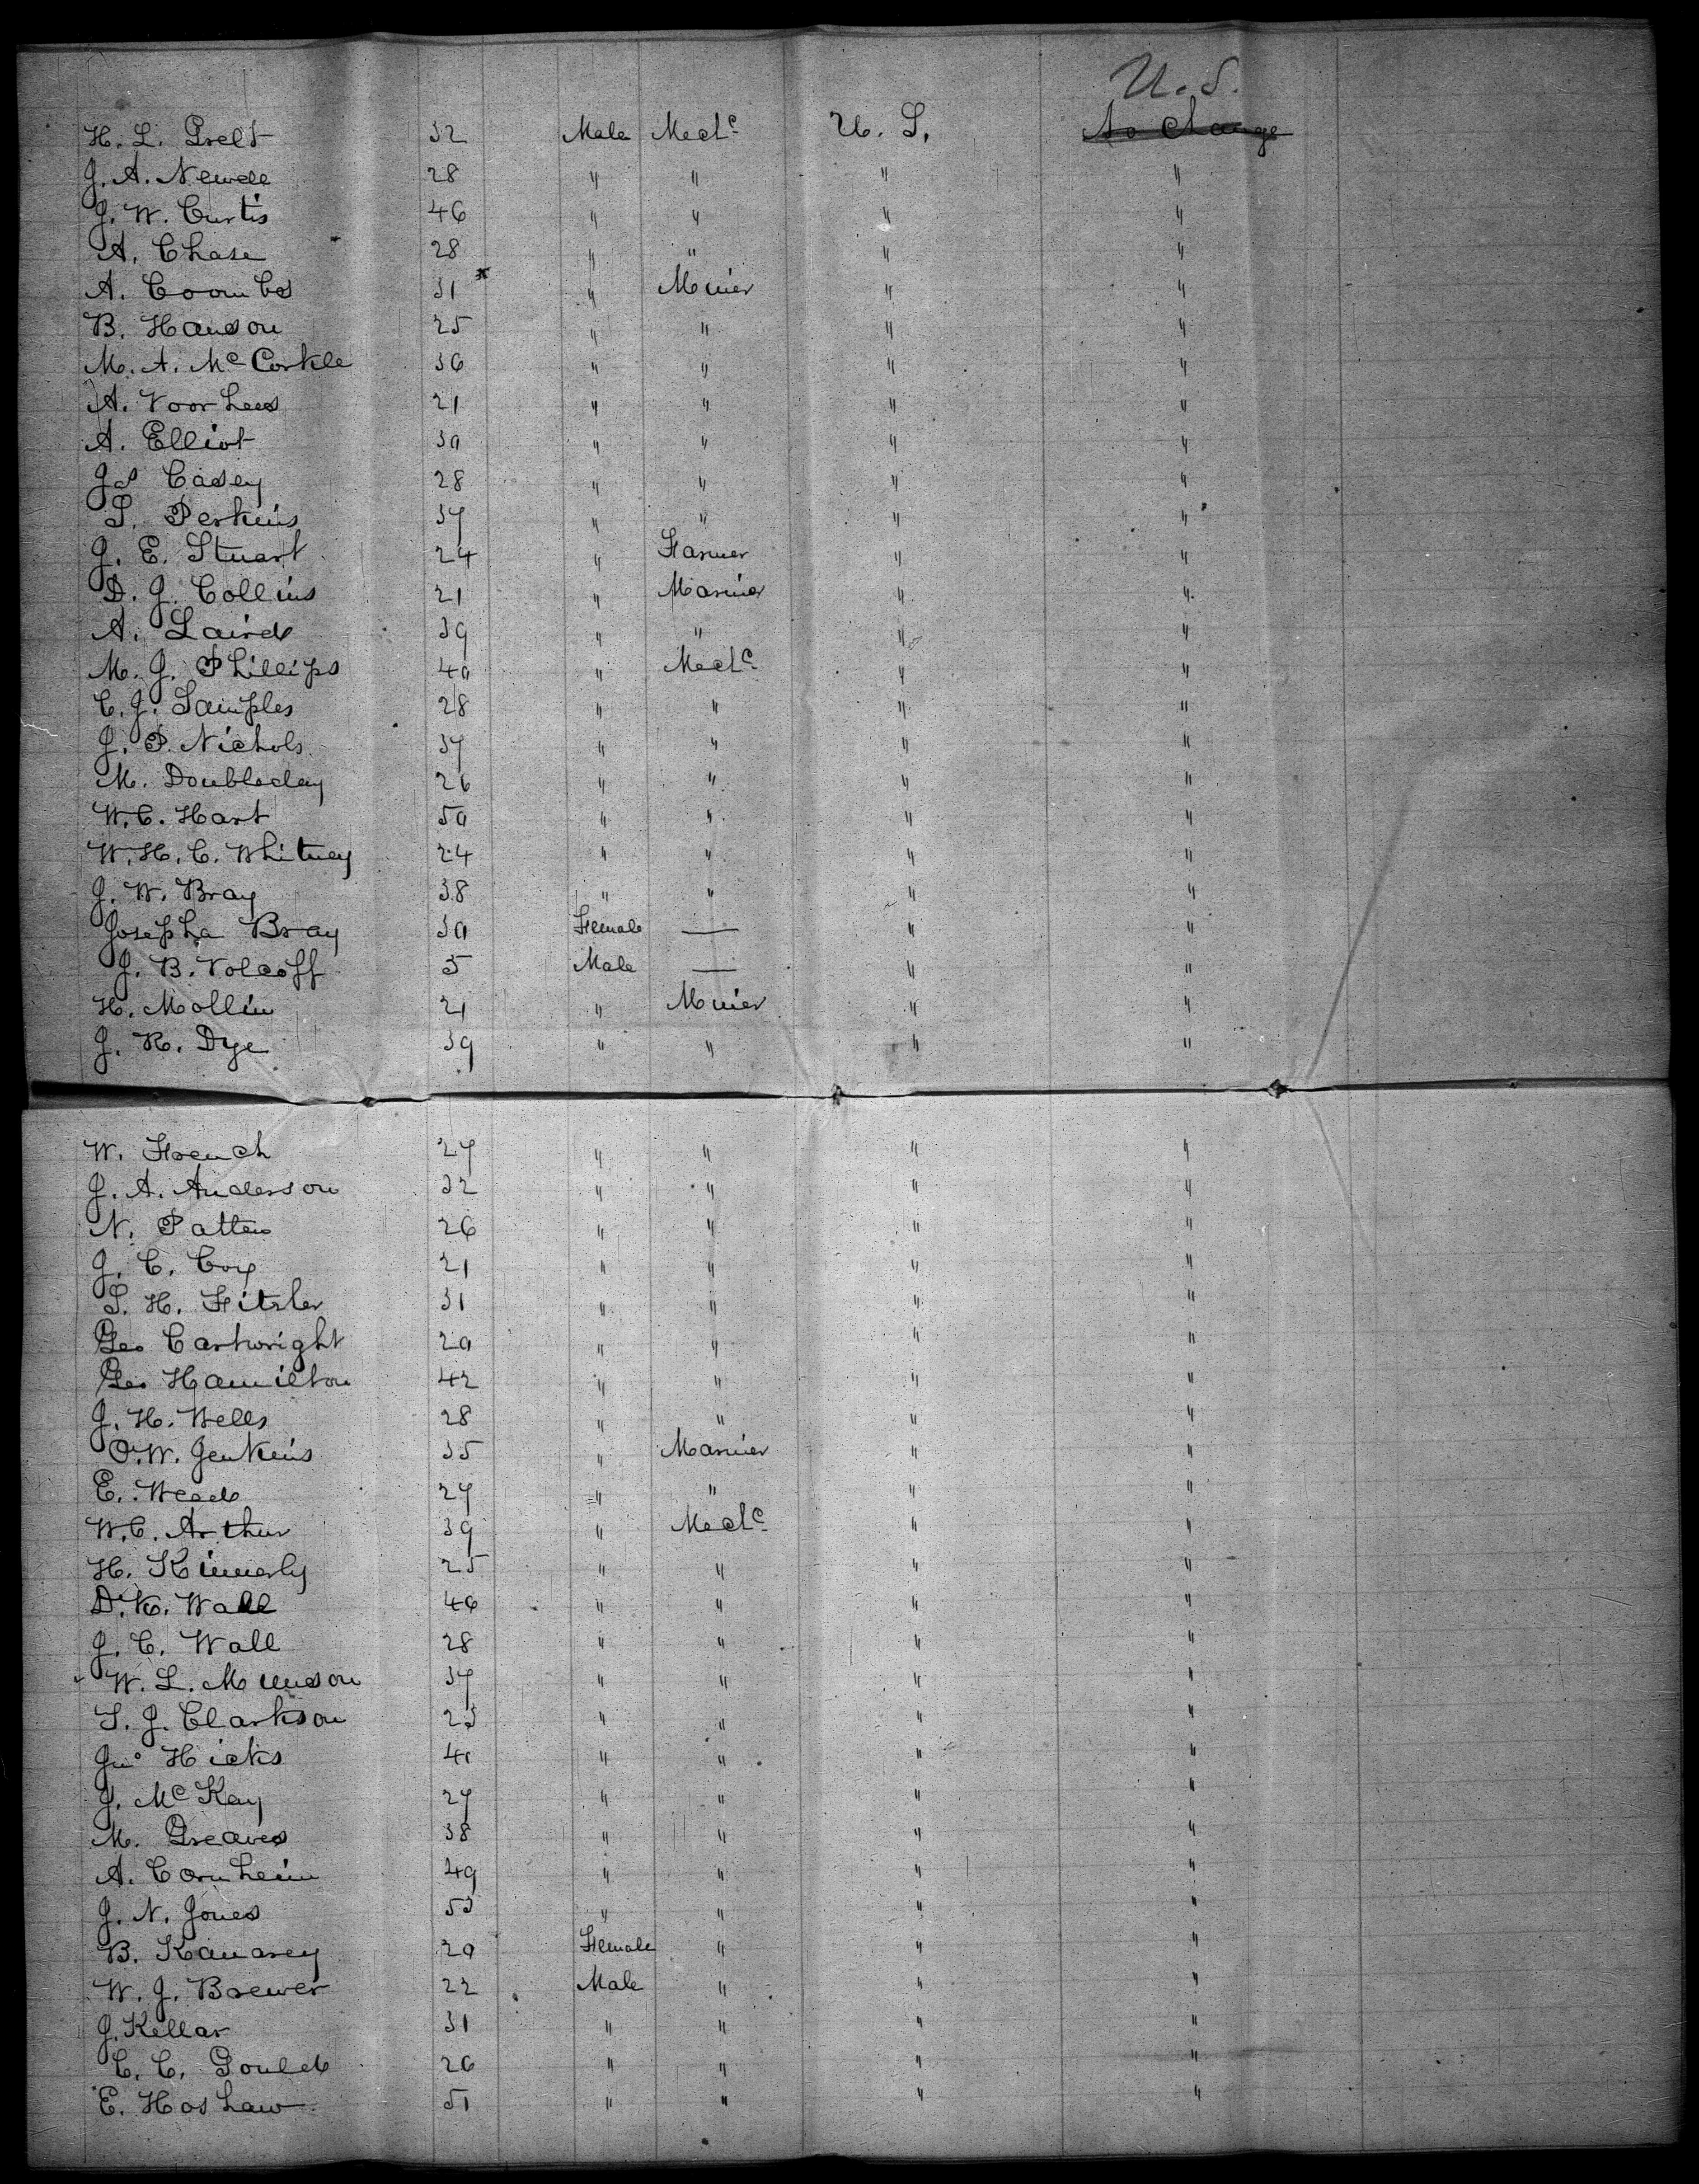 U.S.
H. L. Prelt 32 Male Mechc. U. S. No Change
J. A. Newell 28 " " " "
J. W. Curtis 46 " " " "
A. Chase 28 " " " "
A. Coombs 31 * " Miner " "
B. Hanson 25 " " " "
M. A. McCorkle 36 " " " "
A. Voorhees 21 " " " "
A. Elliot 30 " " " "
Jas Casey 28 " " " "
S. Perkins 37 " " " "
J. E. Stuart 24 " Farmer " "
D. J. Collins 21 " Mariner " "
A. Laird 39 " " " "
M. J. Phillips 40 " Mechc. " "
C. J. Samples 28 " " " "
J. P. Nichols 37 " " " "
M. Doubleday 26 " " " "
W. C. Hart 50 " " " "
W. H. C. Whitney 24 " " " "
J. W. Bray 38 " " " "
Josepha Bray 30 Female — " "
J. B. Volcoff 5 Male — " "
H. Mollin 21 " Miner " "
J. R. Dye 39 " " " "
W. French 27 " " " "
J. A. Anderson 32 " " " "
N. Patten 26 " " " "
J. C. Coy 21 " " " "
S. H. Fitzler 31 " " " "
Geo Cartwright 20 " " " "
Geo Hamilton 42 " " " "
J. H. Wells 28 " " " "
O. W. Jenkins 35 " Mariner " "
E. Weed 27 " " " "
W. C. Arthur 39 " Mechc. " "
H. Kimmerly 25 " " " "
D. K. Wall 46 " " " "
J. C. Wall 28 " " " "
W. L. Munson 37 " " " "
S. J. Clarkson 23 " " " "
Jno Hicks 40 " " " "
J. McKay 27 " " " "
M. Greaves 38 " " " "
A. Cornheim 49 " " " "
J. N. Jones 53 " " " "
B. Kanarey 20 Female " " "
W. J. Brewer 22 Male " " "
J. Kellar 31 " " " "
C. C. Gould 26 " " " "
E. Hoshaw 51 " " " "